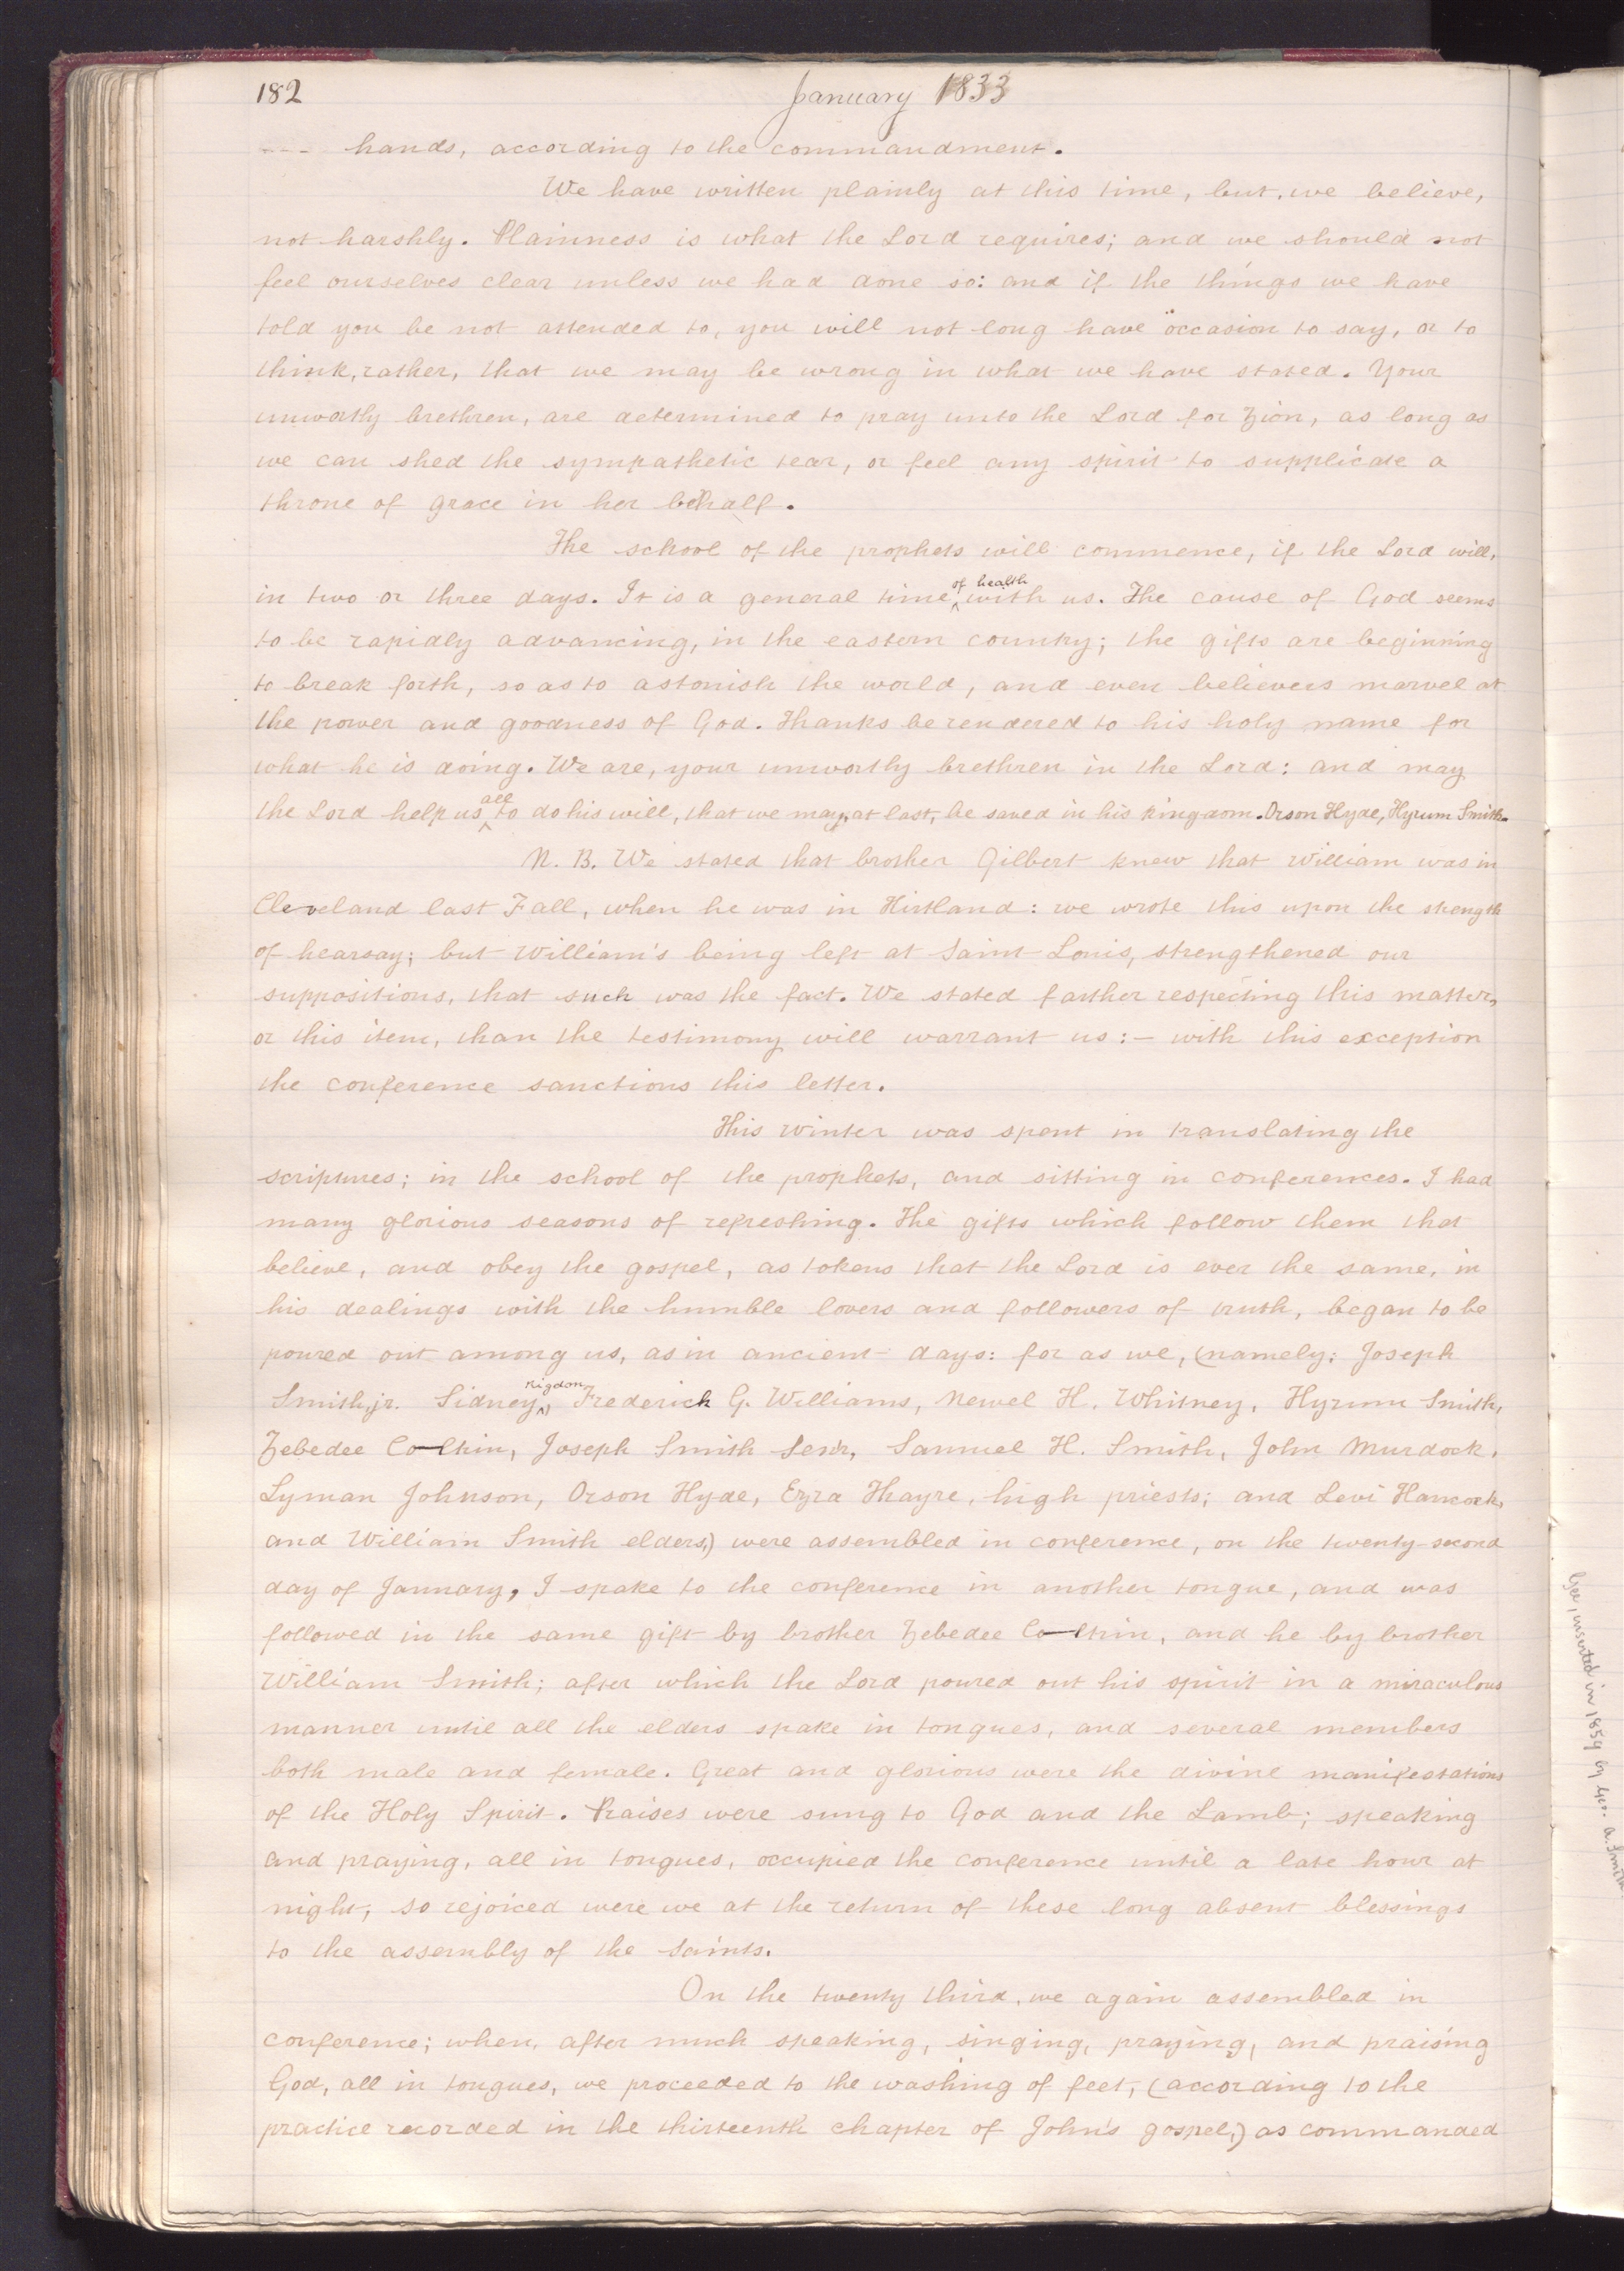 182
January 1833
--- hands, according to the commandment.
We have written plainly at this time, but, we believe,
not harshly. Plainness is what the Lord requires; and we should not
feel ourselves clear unless we had done so: and if the things we have
told you be not attended to, you will not long have occasion to say, or to
think, rather, that we may be wrong in what we have stated. Your
unworthy brethren, are determined to pray unto the Lord for Zion, as long as
we can shed the sympathetic tear, or feel any spirit to supplicate a
throne of grace in her behalf.
The school of the prophets will commence, if the Lord will,
in two or three days. It is a general time of health with us. The cause of God seems
to be rapidly advancing, in the eastern country; the gifts are beginning
to break forth, so as to astonish the world, and even believers marvel at
the power and goodness of God. Thanks be rendered to his holy name for
what he is doing. We are, your unworthy brethren in the Lord: and may
the Lord help us all to do his will, that we may, at last, be saved in his kingdom. Orson Hyde, Hyrum Smith.
N. B. We stated that brother Gilbert knew that William was in
Cleveland last Fall, when he was in Kirtland: we wrote this upon the strength
of hearsay; but William's being left at Saint Louis, strengthened our
suppositions, that such was the fact. We stated farther respecting this matter,
or this item, than the testimony will warrant us:- with this exception
the conference sanctions this letter.
This winter was spent in translating the
scriptures; in the school of the prophets, and sitting in conferences. I had
many glorious seasons of refreshing. The gifts which follow them that
believe, and obey the gospel, as tokens that the Lord is ever the same, in
his dealings with the humble lovers and followers of truth, began to be
poured out among us, as in ancient days: for as we, (namely: Joseph
Smith, jr. Sidney Rigdon, Frederick G. Williams, Newel H. Whitney, Hyrum Smith,
Zebedee Coltrin, Joseph Smith Senr, Samuel H. Smith, John Murdock,
Lyman Johnson, Orson Hyde, Ezra Thayre, high priests; and Levi Hancock,
and William Smith elders,) were assembled in conference, on the twenty-second
day of January, I spake to the conference in another tongue, and was
followed in the same gift by brother Zebedee Coltrin, and he by brother
William Smith; after which the Lord poured out his spirit in a miraculous
manner until all the elders spake in tongues, and several members
both male and female. Great and glorious were the divine manifestations
of the Holy Spirit. Praises were sung to God and the Lamb; speaking
and praying, all in tongues, occupied the conference until a late hour at
night, so rejoiced were we at the return of these long absent blessings
to the assembly of the saints.
On the twenty third, we again assembled in
conference; when, after much speaking, singing, praying, and praising
God, all in tongues, we proceeded to the washing of feet, (according to the
practice recorded in the thirteenth chapter of John's gospel,) as commanded
inserted in 1859 by Geo. A. Smith